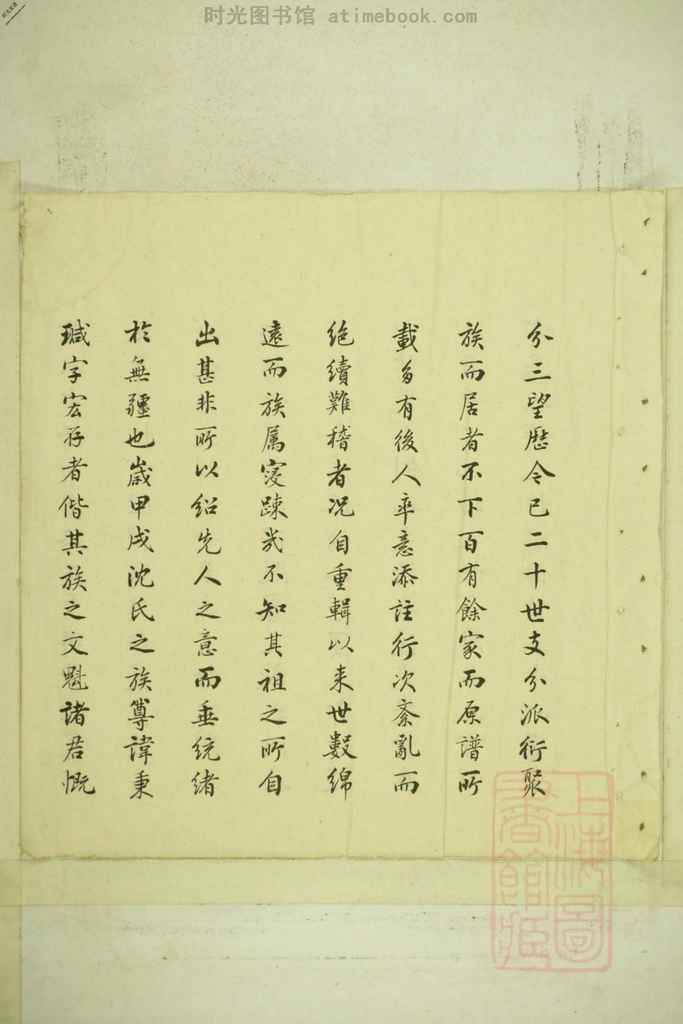 时光图书馆 atimebook.com
分三望歷今已二十世支分派衍聚
族而居者不下百有餘家而原譜所
載多有後人率意添註行次紊亂而
絕續難稽者况自重輯以来世數綿
遠而族属寖踈幾不知其祖之所自
出甚非所以紹先人之意而垂统緒
於無疆也歲甲戌沈氏之族尊諱秉
瑊字宏存者偕其族之文魁諸君慨
上海圖
書館藏